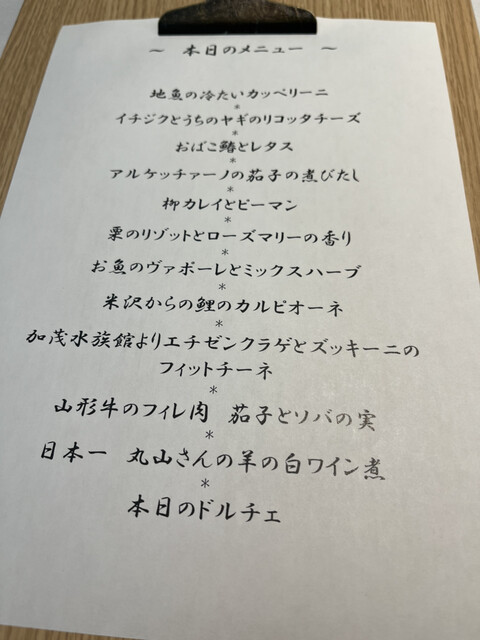 ～ 本日のメニュー ～
地魚の冷たいカッペリーニ
*
イチジクとうちのヤギのリコッタチーズ
*
おばこ鰆とレタス
*
アルケッチァーノの茄子の煮びたし
*
柳カレイとピーマン
*
栗のリゾットとローズマリーの香り
*
お魚のヴァポーレとミックスハーブ
*
米沢からの鯉のカルピオーネ
*
加茂水族館よりエチゼンクラゲとズッキーニの
フィットチーネ
*
山形牛のフィレ肉 茄子とソバの実
*
日本一 丸山さんの羊の白ワイン煮
*
本日のドルチェ